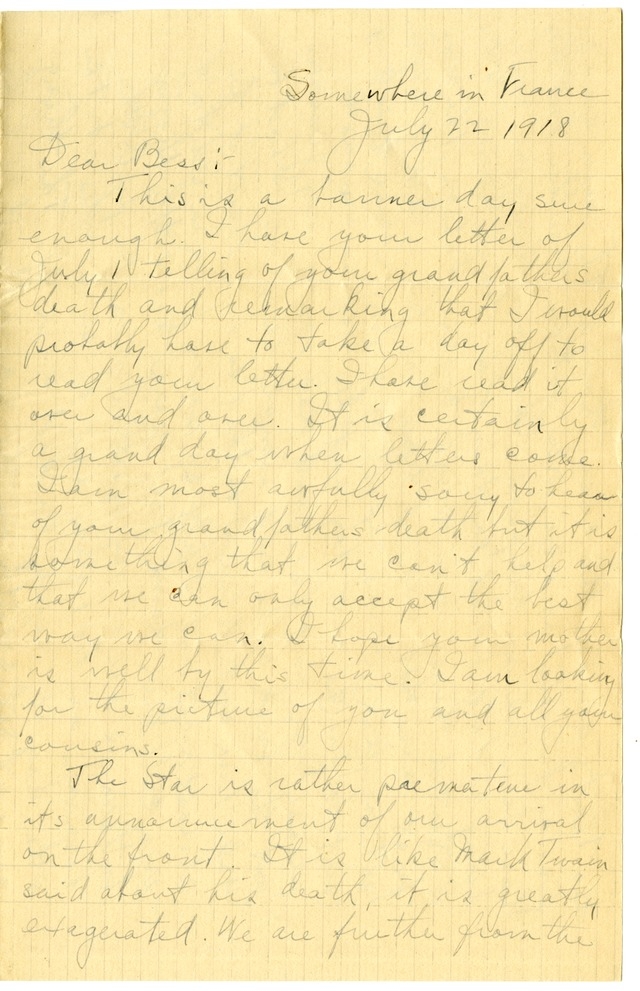 Somewhere in France
July 22 1918
Dear Bess:-
This is a banner day sure
enough. I have your letter of
July 1 telling of your grandfathers
death and remarking that I would
probably have to take a day off to
read your letter. I have read it
over and over. It is certainly
a grand day when letters come.
I am most awfully sorry to hear
of your grandfathers death but it is
something that we can't help and
that we can only accept the best
way we can. I hope your mother
is well by this time. I am looking
for the picture of you and all your
cousins.
The Star is rather premature in
its announcement of our arrival
on the front. It is like Mark Twain
said about his death, it is greatly
exagerated. We are further from the